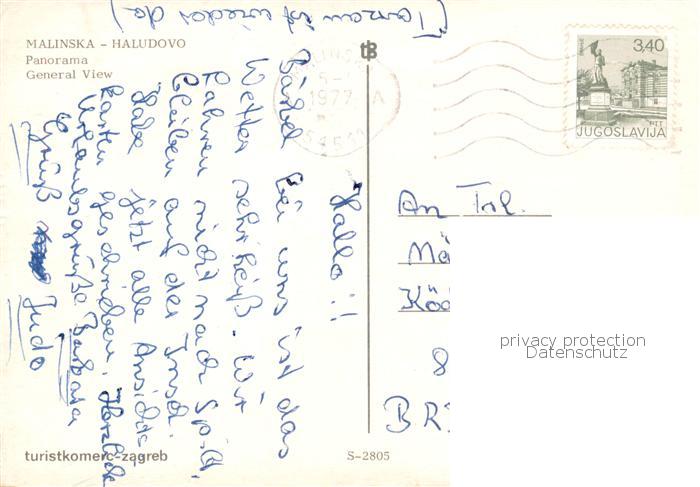 MALINSKA – HALUDOVO
Panorama
General View
(Tarzan ist wieder da)
Hallo!!
Bärbel bei uns ist das
Wetter sehr heiß. Wir
fahren nicht nach Split.
Bleiben auf der Insel.
Habe jetzt alle Ansichts-
karten geschrieben. Herzliche
Urlaubsgrüße Barbara
Gruß
1977
3,40
PTT
JUGOSLAVIJA
An Frl.
Mä
Köd
8
BR
privacy protection
Datenschutz
turistkomerc-zagreb
S-2805